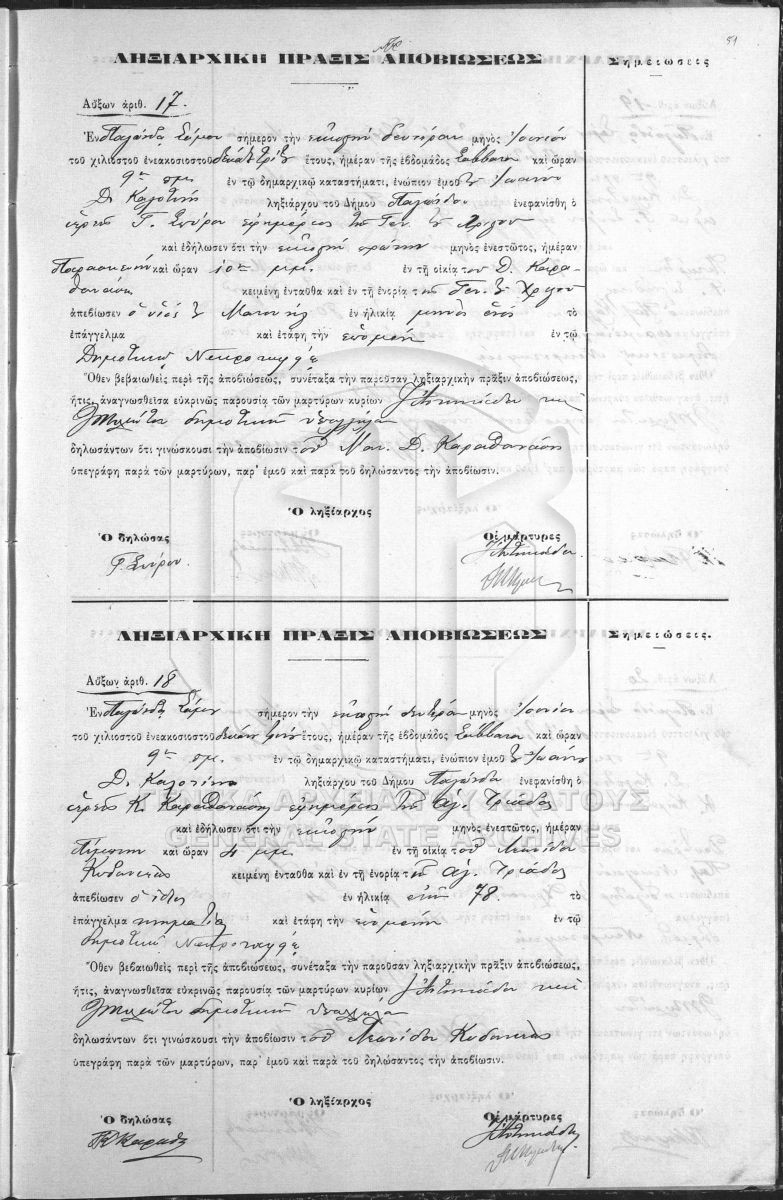 51
ΛΗΞΙΑΡΧΙΚΗ ΠΡΑΞΙΣ ΑΠΟΒΙΩΣΕΩΣ
Σημειώσεις
Αὔξων ἀριθ. 17.
Ἐν Παγώνδᾳ Σάμου σήμερον τὴν εἰκοστὴν δευτέραν μηνὸς Ἰουνίου
τοῦ χιλιοστοῦ ἐνεακοσιοστοῦ ἔτους, ἡμέραν τῆς ἑβδομάδος Σάββατον καὶ ὥραν
9ην πμ. ἐν τῷ δημαρχικῷ καταστήματι, ἐνώπιον ἐμοῦ Ἰωάννου
Δ. ληξιάρχου τοῦ Δήμου Παγώνδου ἐνεφανίσθη ὁ
ἱερεὺς Γ. Σπύρου ἐφημέριος τῆς Γεν. τοῦ Χριστοῦ
καὶ ἐδήλωσεν ὅτι τὴν εἰκοστὴν πρώτην μηνὸς ἐνεστῶτος, ἡμέραν
Παρασκευὴν καὶ ὥραν 10ην μμ. ἐν τῇ οἰκίᾳ τοῦ Δ. Καρα-
θανάση κειμένῃ ἐνταῦθα καὶ ἐν τῇ ἐνορίᾳ τῆς Γεν. τοῦ Χριστοῦ
ἀπεβίωσεν ὁ υἱός του Μανουὴλ ἐν ἡλικίᾳ μηνὸς ἑνὸς τὸ
ἐπάγγελμα καὶ ἐτάφη τὴν ἑπομένην ἐν τῷ
Δημοτικῷ Νεκροταφείῳ
Ὅθεν βεβαιωθεὶς περὶ τῆς ἀποβιώσεως, συνέταξα τὴν παροῦσαν ληξιαρχικὴν πρᾶξιν ἀποβιώσεως,
ἥτις, ἀναγνωσθεῖσα εὐκρινῶς παρουσίᾳ τῶν μαρτύρων κυρίων Ἀντωνιάδου καὶ
δημοτικῶν ὑπαλλήλων
δηλωσάντων ὅτι γινώσκουσι τὴν ἀποβίωσιν τοῦ Μαν. Δ. Καραθανάση
ὑπεγράφη παρὰ τῶν μαρτύρων, παρ' ἐμοῦ καὶ παρὰ τοῦ δηλώσαντος τὴν ἀποβίωσιν.
Ὁ ληξίαρχος
Ὁ δηλώσας
Οἱ μάρτυρες
Γ. Σπύρου
ΛΗΞΙΑΡΧΙΚΗ ΠΡΑΞΙΣ ΑΠΟΒΙΩΣΕΩΣ
Σημειώσεις.
Αὔξων ἀριθ. 18
Ἐν Παγώνδᾳ Σάμου σήμερον τὴν εἰκοστὴν δευτέραν μηνὸς Ἰουνίου
τοῦ χιλιοστοῦ ἐνεακοσιοστοῦ ἔτους, ἡμέραν τῆς ἑβδομάδος Σάββατον καὶ ὥραν
9ην πμ. ἐν τῷ δημαρχικῷ καταστήματι, ἐνώπιον ἐμοῦ Ἰωάννου
Δ. ληξιάρχου τοῦ Δήμου Παγώνδου ἐνεφανίσθη ὁ
ἱερεὺς Κ. Καραθανάσης ἐφημέριος τῆς Ἁγ. Τριάδος
ΓΕΝΙΚΑ ΑΡΧΕΙΑ ΤΟΥ ΚΡΑΤΟΥΣ
καὶ ἐδήλωσεν ὅτι τὴν εἰκοστὴν μηνὸς ἐνεστῶτος, ἡμέραν
GENERAL STATE ARCHIVES
Πέμπτην καὶ ὥραν 4 μμ. ἐν τῇ οἰκίᾳ τοῦ Λεωνίδα
κειμένῃ ἐνταῦθα καὶ ἐν τῇ ἐνορίᾳ τῆς Ἁγ. Τριάδος
ἀπεβίωσεν ὁ ἴδιος ἐν ἡλικίᾳ ἐτῶν 78. τὸ
ἐπάγγελμα κτηματίας καὶ ἐτάφη τὴν ἑπομένην ἐν τῷ
δημοτικῷ Νεκροταφείῳ
Ὅθεν βεβαιωθεὶς περὶ τῆς ἀποβιώσεως, συνέταξα τὴν παροῦσαν ληξιαρχικὴν πρᾶξιν ἀποβιώσεως,
ἥτις, ἀναγνωσθεῖσα εὐκρινῶς παρουσίᾳ τῶν μαρτύρων κυρίων Ἀντωνιάδου καὶ
δημοτικῶν ὑπαλλήλων
δηλωσάντων ὅτι γινώσκουσι τὴν ἀποβίωσιν τοῦ Λεωνίδα
ὑπεγράφη παρὰ τῶν μαρτύρων, παρ' ἐμοῦ καὶ παρὰ τοῦ δηλώσαντος τὴν ἀποβίωσιν.
Ὁ ληξίαρχος
Ὁ δηλώσας
Οἱ μάρτυρες